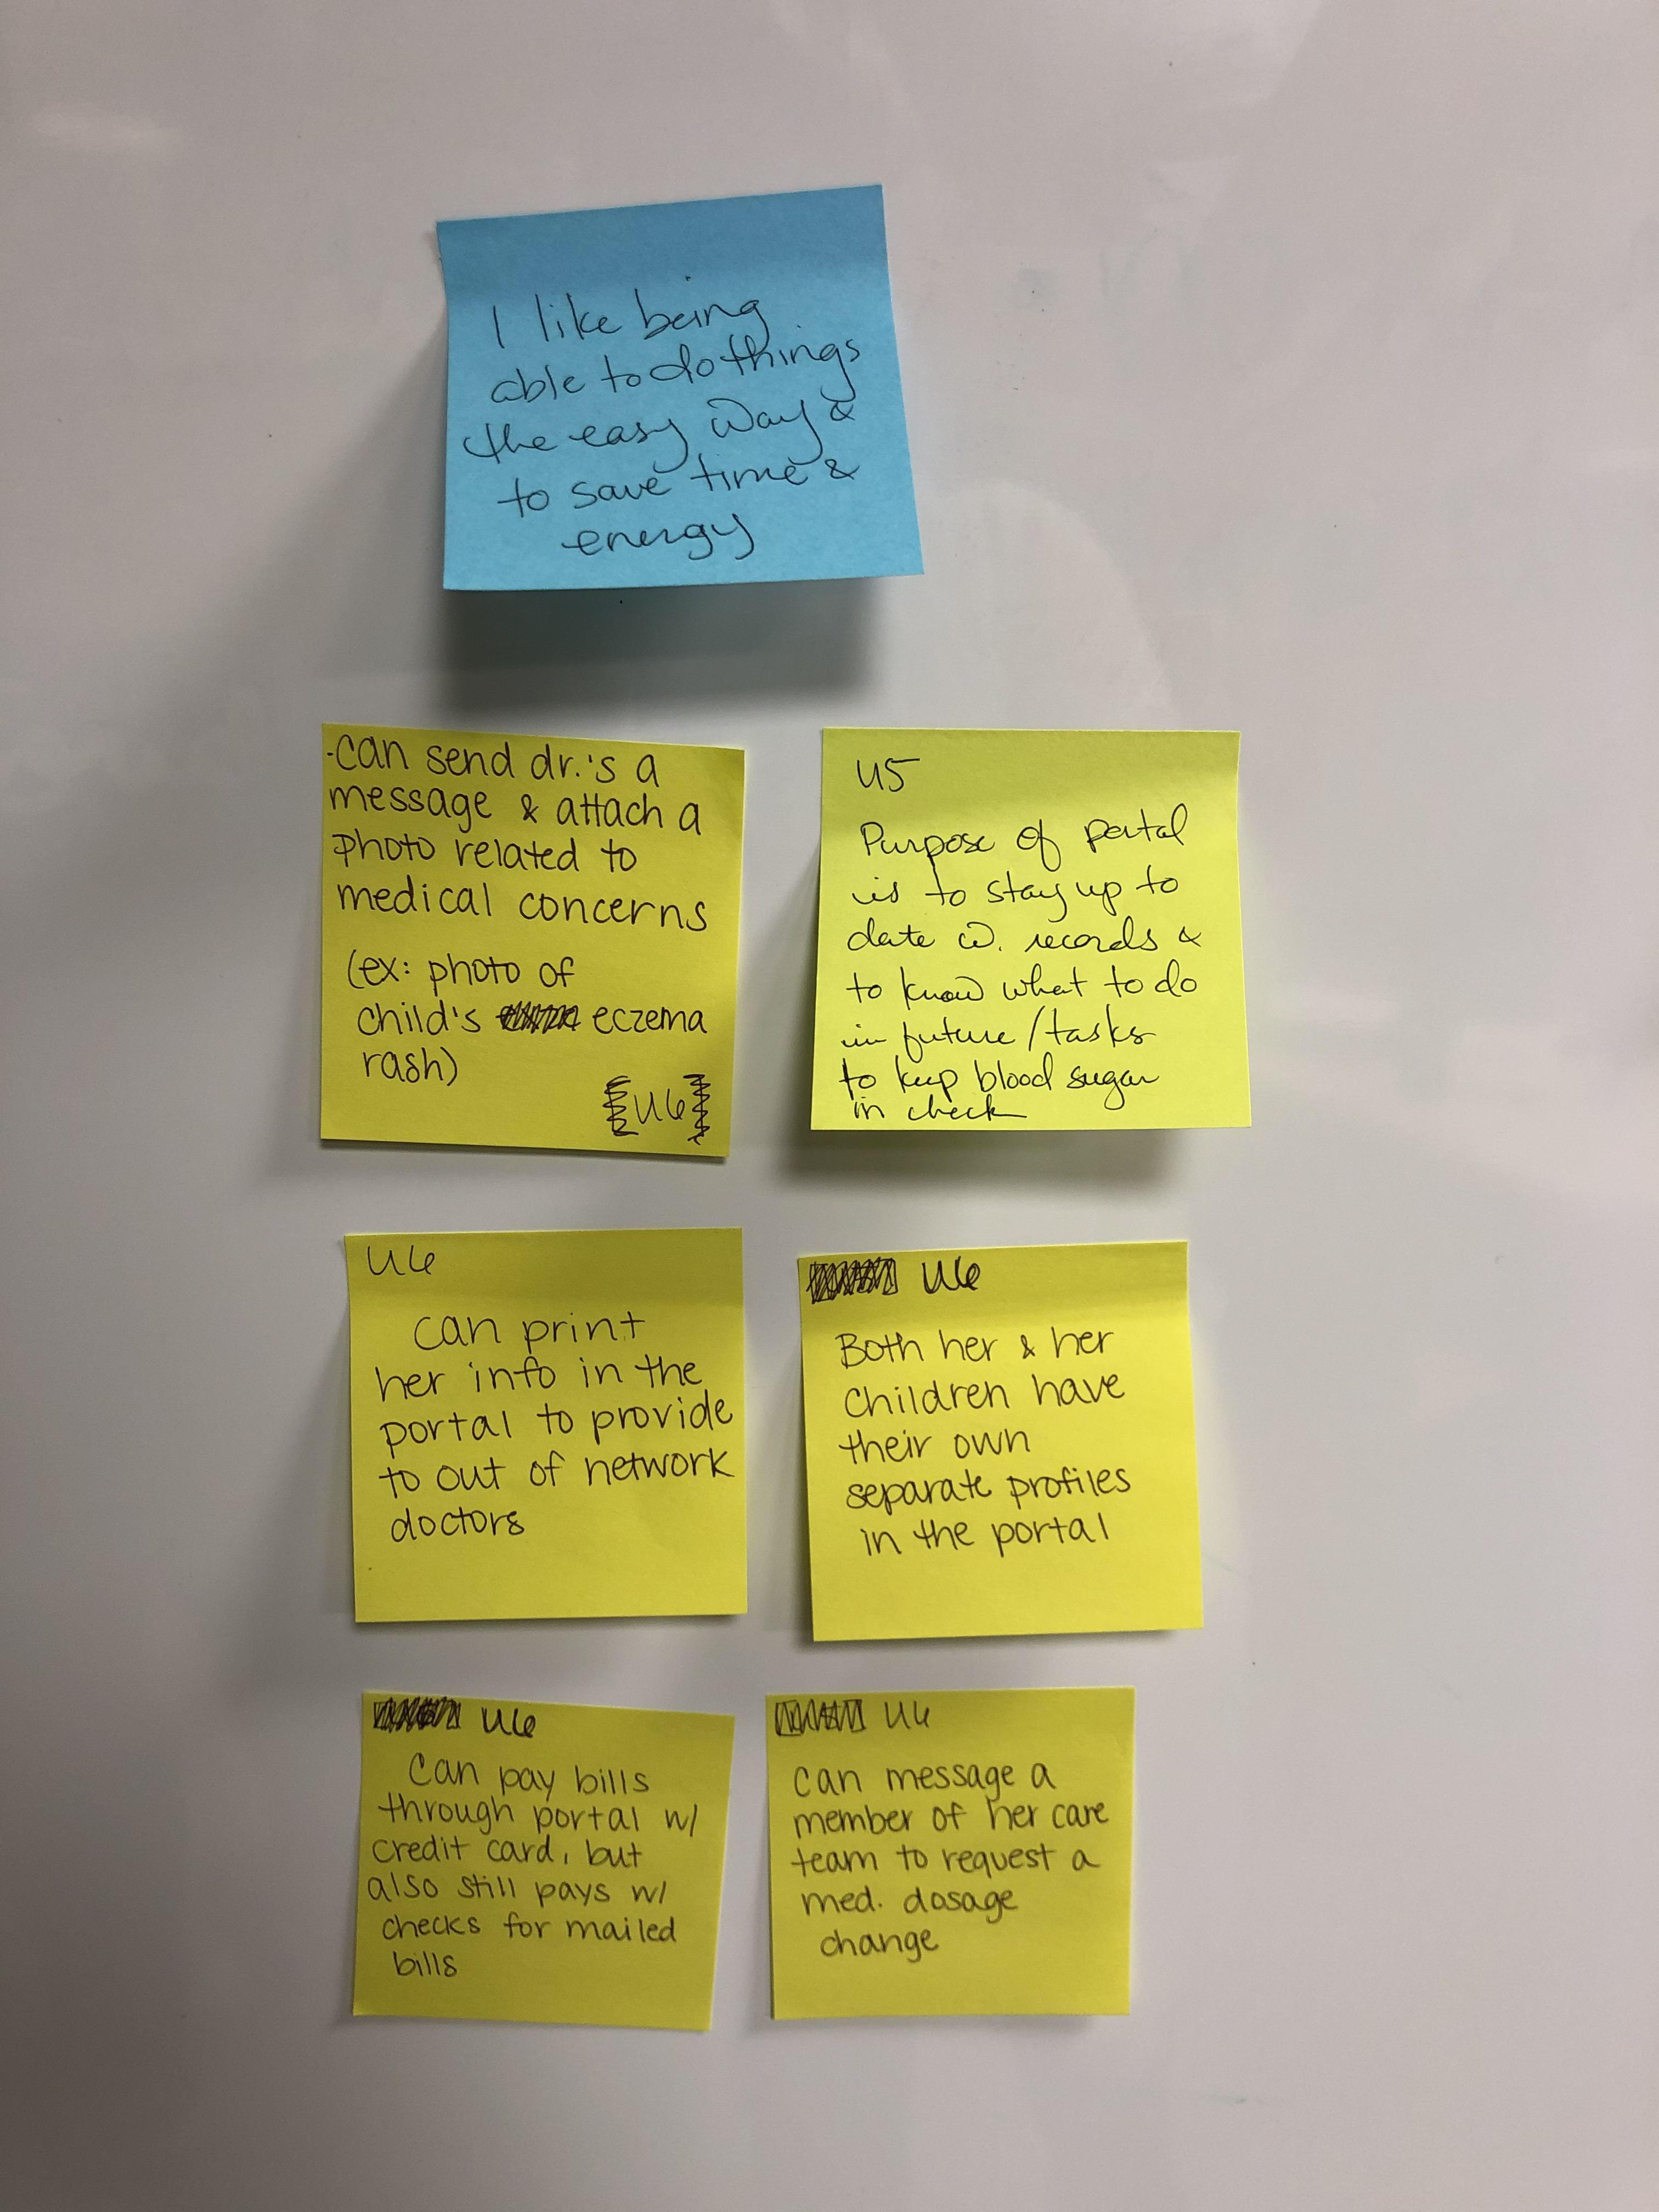 I like being
able to do things
the easy way &
to save time &
energy
-Can send dr.'s a
message & attach a
photo related to
medical concerns
(ex: photo of
child's eczema
rash)
[U6]
U5
Purpose of portal
is to stay up to
date w. records &
to know what to do
in future/tasks
to keep blood sugar
in check
U6
Can print
her info in the
portal to provide
to out of network
doctors
U6
Both her & her
children have
their own
separate profiles
in the portal
U6
Can pay bills
through portal w/
credit card, but
also still pays w/
checks for mailed
bills
U6
Can message a
member of her care
team to request a
med. dosage
change